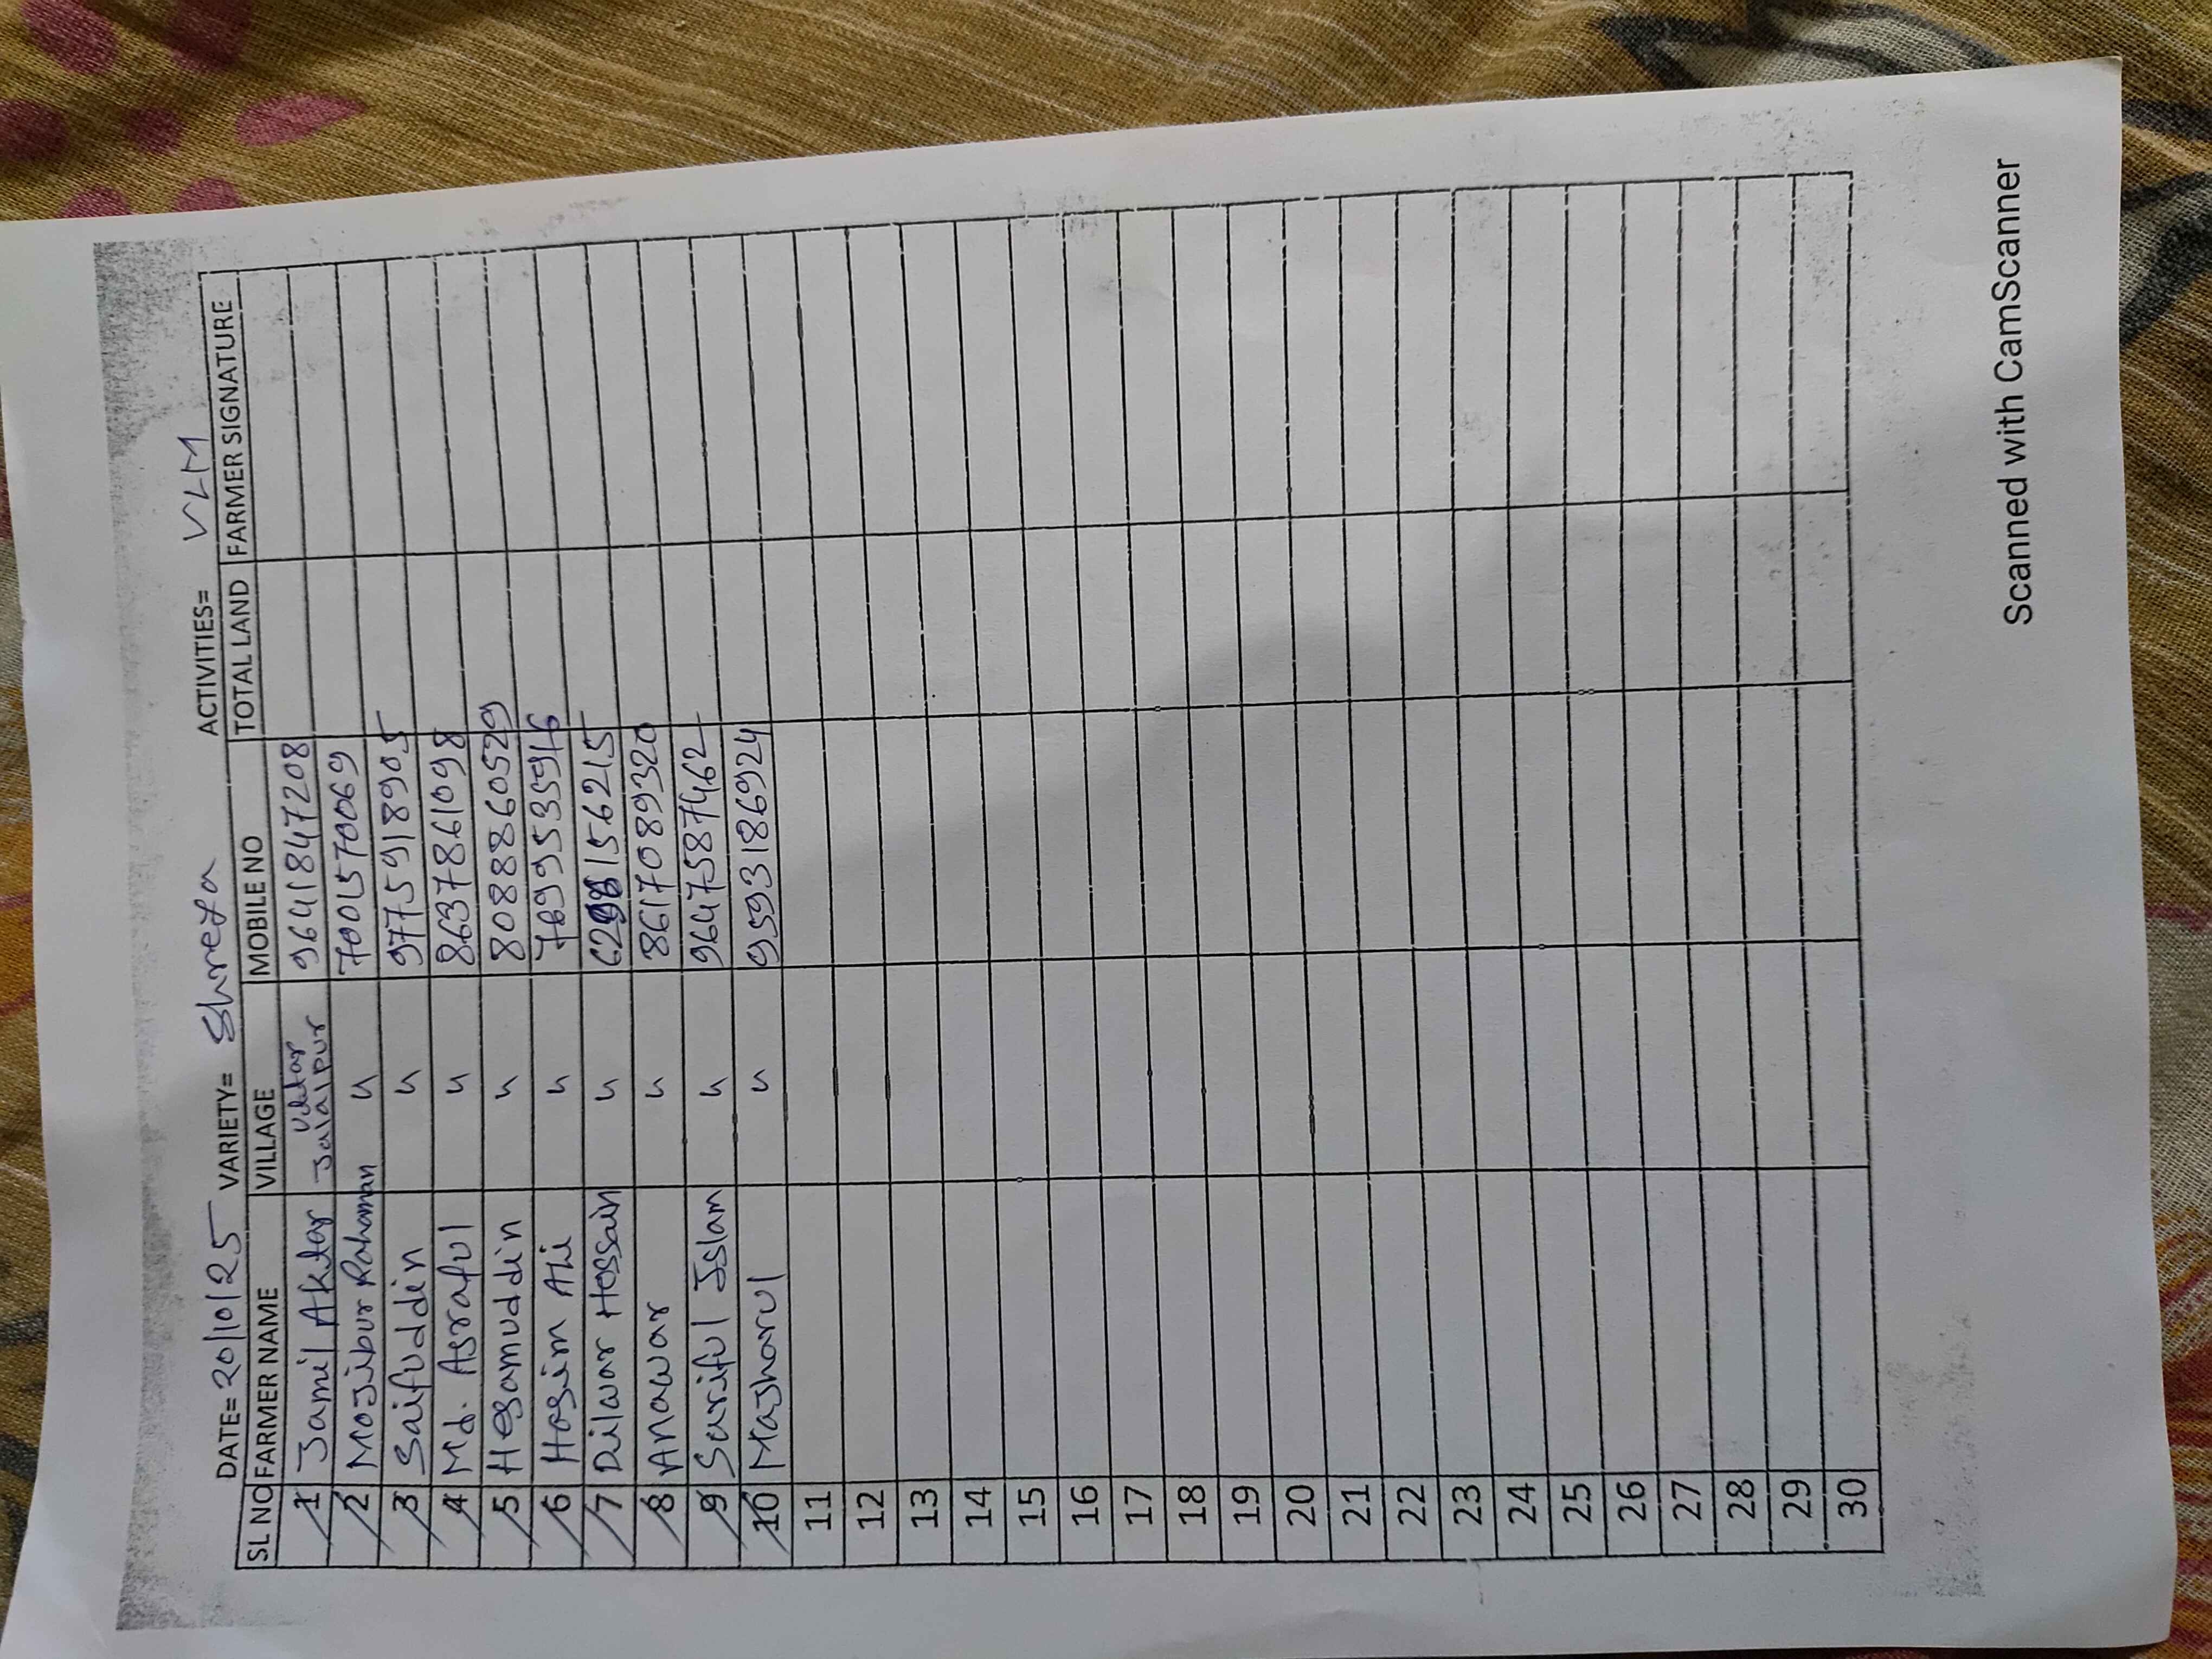 DATE= 20/10/25 VARIETY= Shreya ACTIVITIES= VLM
SL NO FARMER NAME VILLAGE MOBILE NO TOTAL LAND FARMER SIGNATURE
1 Jamil Aktar Uttar Jalalpur 9641847208
2 Mojibur Rahaman " 7001570069
3 Saifuddin " 9775918905
4 Md. Asraful " 8637861098
5 Hesamuddin " 8088860529
6 Hosim Ali "
7 Dilawar Hossain "
8 Anawar " 8617089320
9 Sariful Islam " 9647587462
10 Masharul " 9593186924
11
12
13
14
15
16
17
18
19
20
21
22
23
24
25
26
27
28
29
30
Scanned with CamScanner